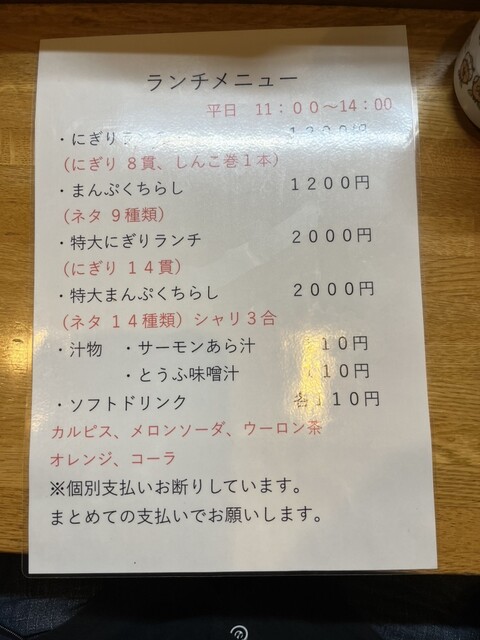 ランチメニュー
平日 11：00～14：00
・にぎり
(にぎり 8貫、しんこ巻1本)
・まんぷくちらし 1200円
(ネタ 9種類)
・特大にぎりランチ 2000円
(にぎり 14貫)
・特大まんぷくちらし 2000円
(ネタ 14種類) シャリ3合
・汁物 ・サーモンあら汁 10円
・とうふ味噌汁 10円
・ソフトドリンク 各110円
カルピス、メロンソーダ、ウーロン茶
オレンジ、コーラ
※個別支払いお断りしています。
まとめての支払いでお願いします。